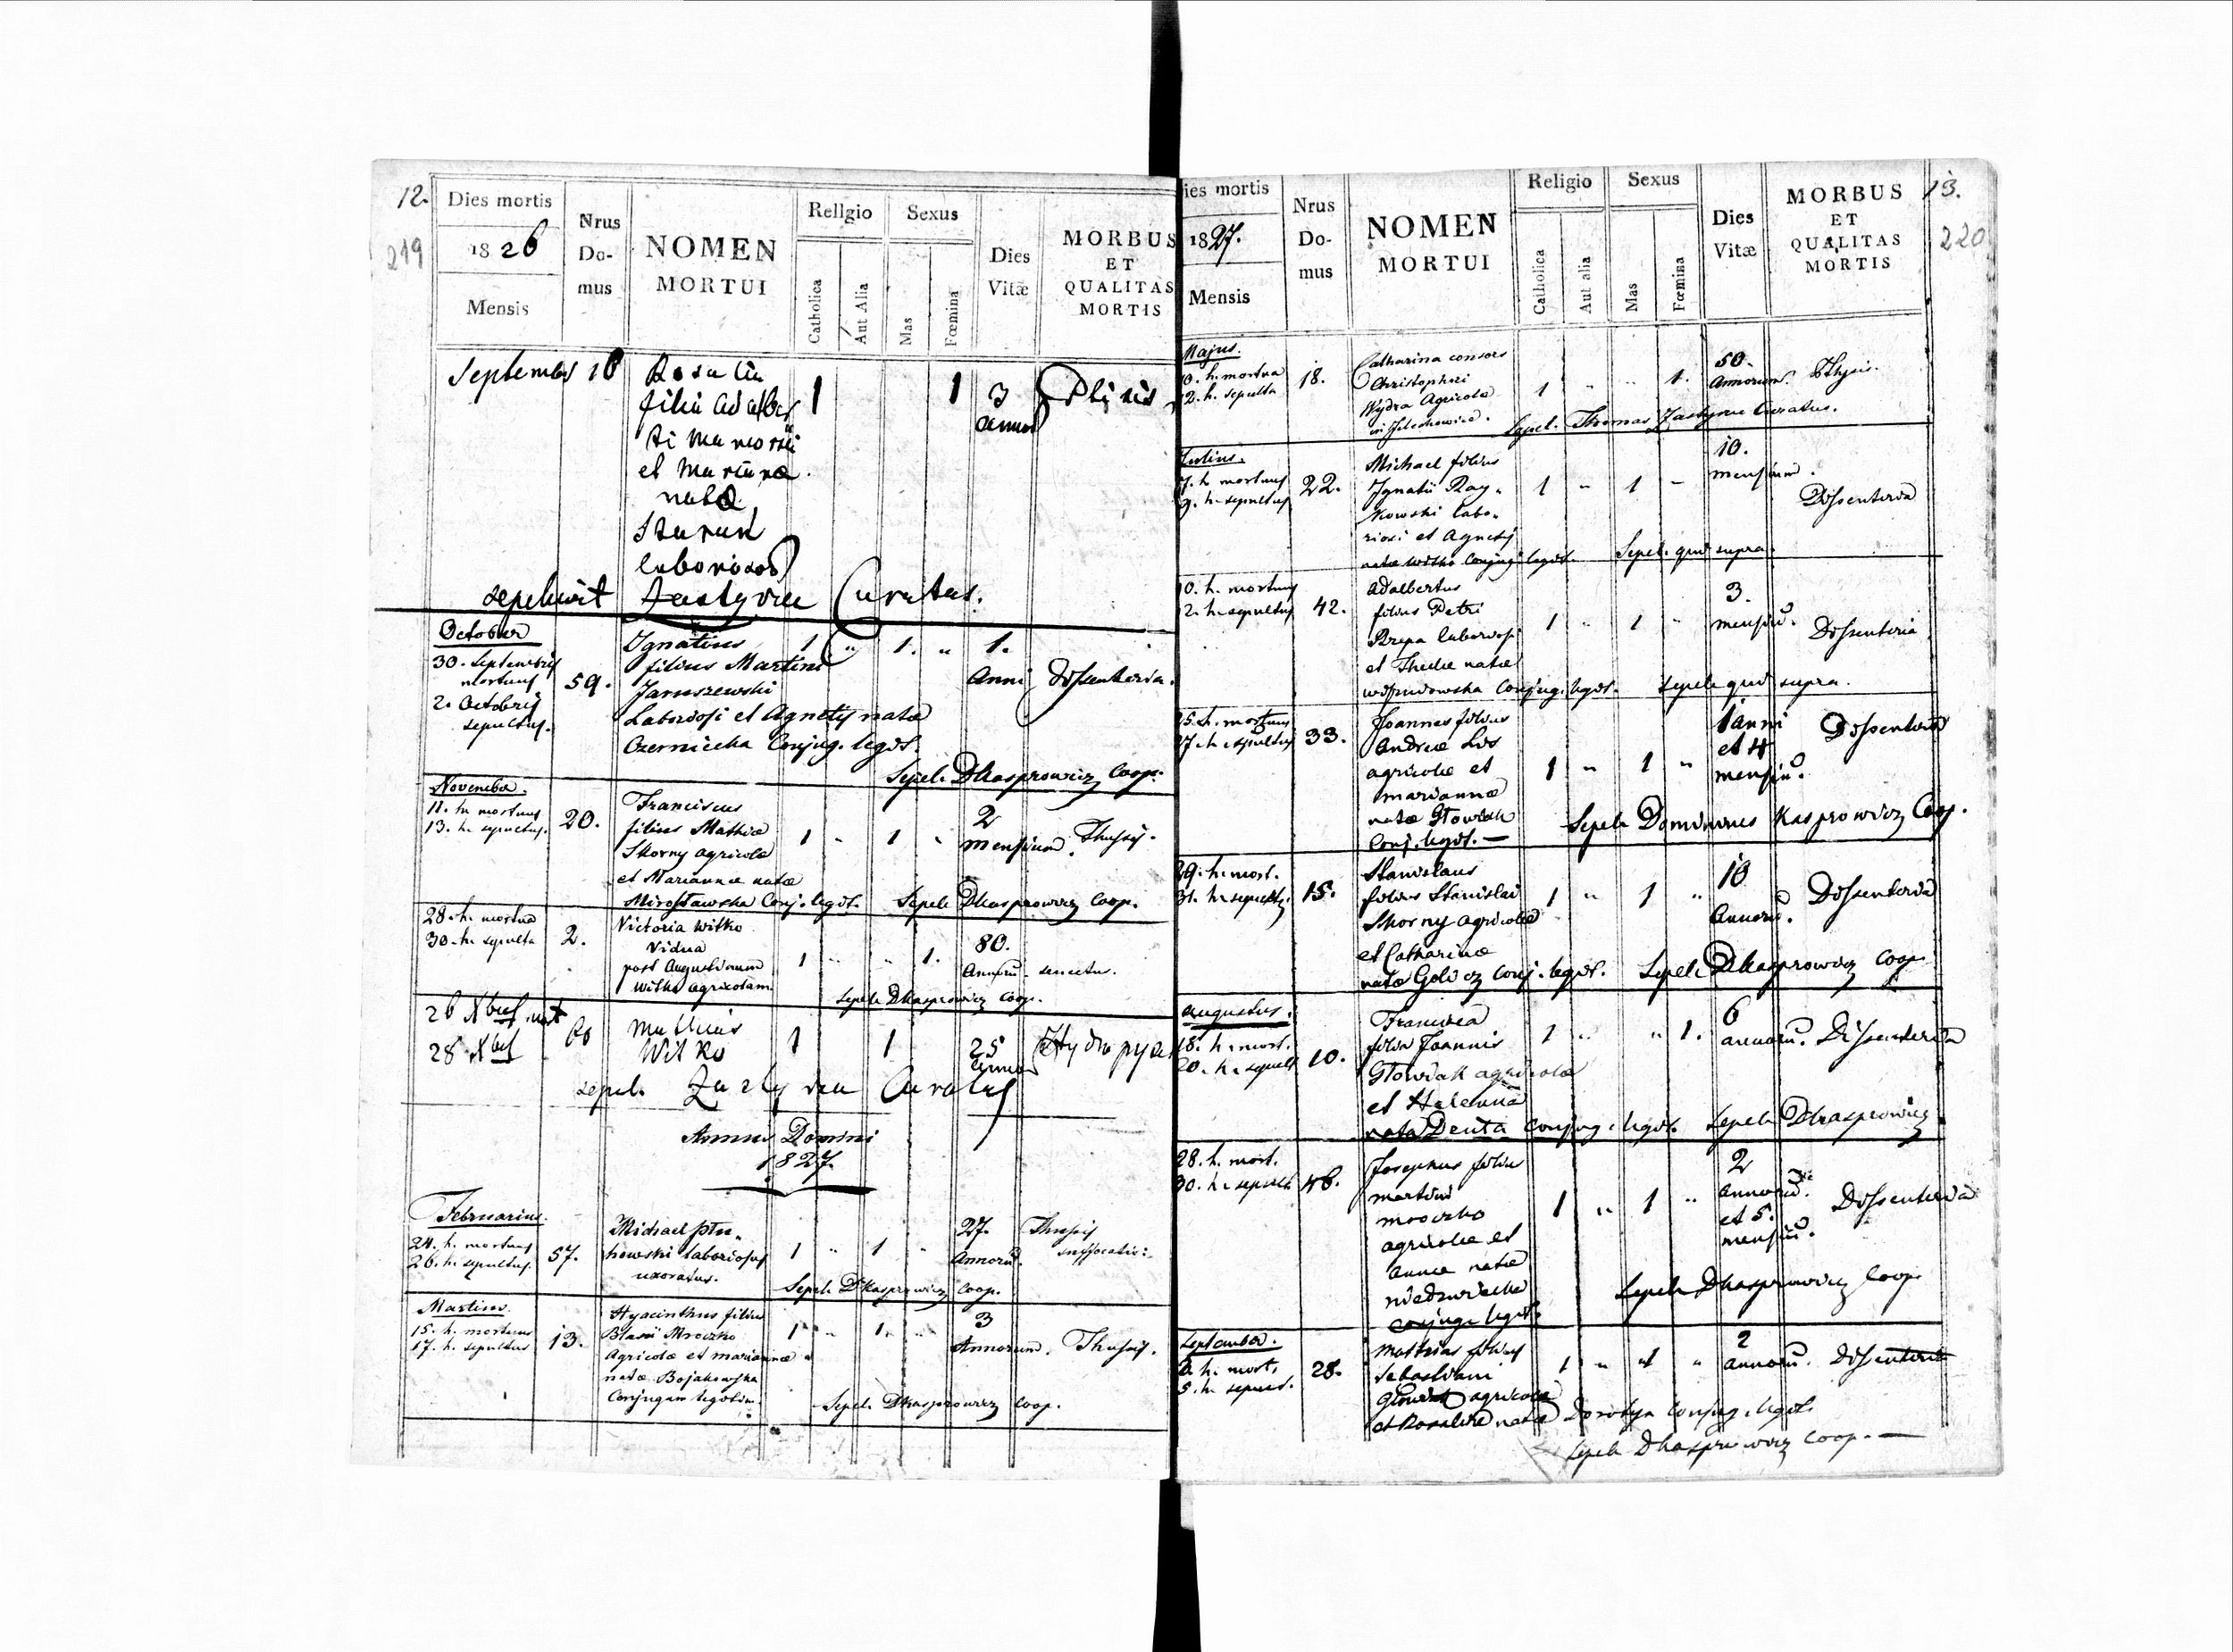 12.
219
Dies mortis
1826
Mensis
Nrus
Do-
mus
NOMEN
MORTUI
Religio
Catholica
Aut Alia
Sexus
Mas
Fœmina
Dies
Vitæ
MORBUS
ET
QUALITAS
MORTIS
September 18
Rosalia
filia Adalber
ti
et Mariana
nata
laboriosos
1 1 3 annor
sepelivit Zastyrec Curatus.
October
30. Septembris
mortuus
2. Octobris
sepultus.
59.
Ignatius
filius Martini
Januszewski
Laboriosi et Agnetis natæ
Czernicka Conjug. legit.
1 " 1. " 1.
Anni Dissenteria.
Sepel. DKasprowicz Coop.
November.
11. h. mortuus
13. h. sepultus.
20.
Franciscus
filius Mathiæ
Skorny agricolæ
et Mariannæ natæ
Mirosławska Conj. legit.
1 " 1 " 2
mensium. Thussis.
Sepel. DKasprowicz Coop.
28. h. mortua
30. h. sepulta
2.
Victoria Witko
Vidua
post Augustinum
Witko agricolam
1 " " 1. 80.
Annorū senectus.
Sepel. DKasprowicz Coop.
26 Xbris mort
28 Xbris
60
Mathias
Witko
1 1 25
annor
sepel. Zastyrec Curatus
Annus Domini
1827.
Februarius.
24. h. mortuus
26. h. sepultus.
57.
Michael
howski laboriosus
uxoratus.
1 " 1 " 27.
Annorū.
Thussis
suffocatio.
Sepel. DKasprowicz Coop.
Martius.
15. h. mortuus
17. h. sepultus
13.
Hyacinthus filius
Blasii Mroczko
Agricolæ et mariannæ
natæ Bojakowska
Conjugum legitim.
1 " 1. " 3
Annorum. Thussis.
Sepel. DKasprowicz Coop.
13.
220
Dies mortis
1827.
Mensis
Nrus
Do-
mus
NOMEN
MORTUI
Religio
Catholica
Aut alia
Sexus
Mas
Fœmina
Dies
Vitæ
MORBUS
ET
QUALITAS
MORTIS
Majus.
10. h. mortua
12. h. sepulta
18.
Catharina consors
Christophori
Wydra Agricolæ
1 " " 1.
50.
Annorum. Pthysis.
Sepel. Thomas Zastyrec Curatus.
Julius.
7. h. mortuus
9. h. sepultus
22.
Michael filius
Ignatii Ray-
kowski labo-
riosi et Agnetis
natæ Witko Conjug. legit.
1 " 1 "
10.
mensium.
Dissenteria
Sepel. qui supra.
10. h. mortuus
12. h. sepultus
42.
Adalbertus
filius Petri
Rzepa laboriosi
et Theclæ natæ
Conjug. legit.
1 " 1 "
3.
mensiū.
Dissenteria
Sepel. qui supra.
25. h. mortuus
27. h. sepultus
33.
Joannes filius
Andreæ Lis
agricolæ et
mariannæ
natæ Głowiak
Conj. legit. —
1 " 1 "
1 anni
et 4
mensiū.
Dissenteria
Sepel. Dominicus Kasprowicz Coop.
29. h. mort.
31. h. sepult.
15.
Stanislaus
filius Stanislai
Skorny agricolæ
et Catharinæ
natæ Golicz Conj. legit.
1 " 1 "
10
Annorū.
Dissenteria
Sepel. DKasprowicz Coop.
Augustus.
18. h. mort.
20. h. sepult
10.
Francisca
filia Joannis
Głowiak agricolæ
et Helenna
nata Deuta Conjug. legit.
1 " " 1.
6
annorū. Dissenteria
Sepel. DKasprowicz
28. h. mort.
30. h. sepult
46.
Josephus filius
martini
mroczko
agricolæ et
Annæ natæ
niedzwiecka
conjug. legit.
1 " 1 "
2
annorū.
et 5.
mensiū.
Dissenteria
Sepel. DKasprowicz Coop.
September.
3. h. mort.
5. h. sepult.
28.
Mathias filius
Sebastiani
agricolæ
et Rosaliæ natæ Dorotya Conjug. legit.
1 " 1 "
2
annorū. Dissenteria
Sepel. DKasprowicz Coop. —